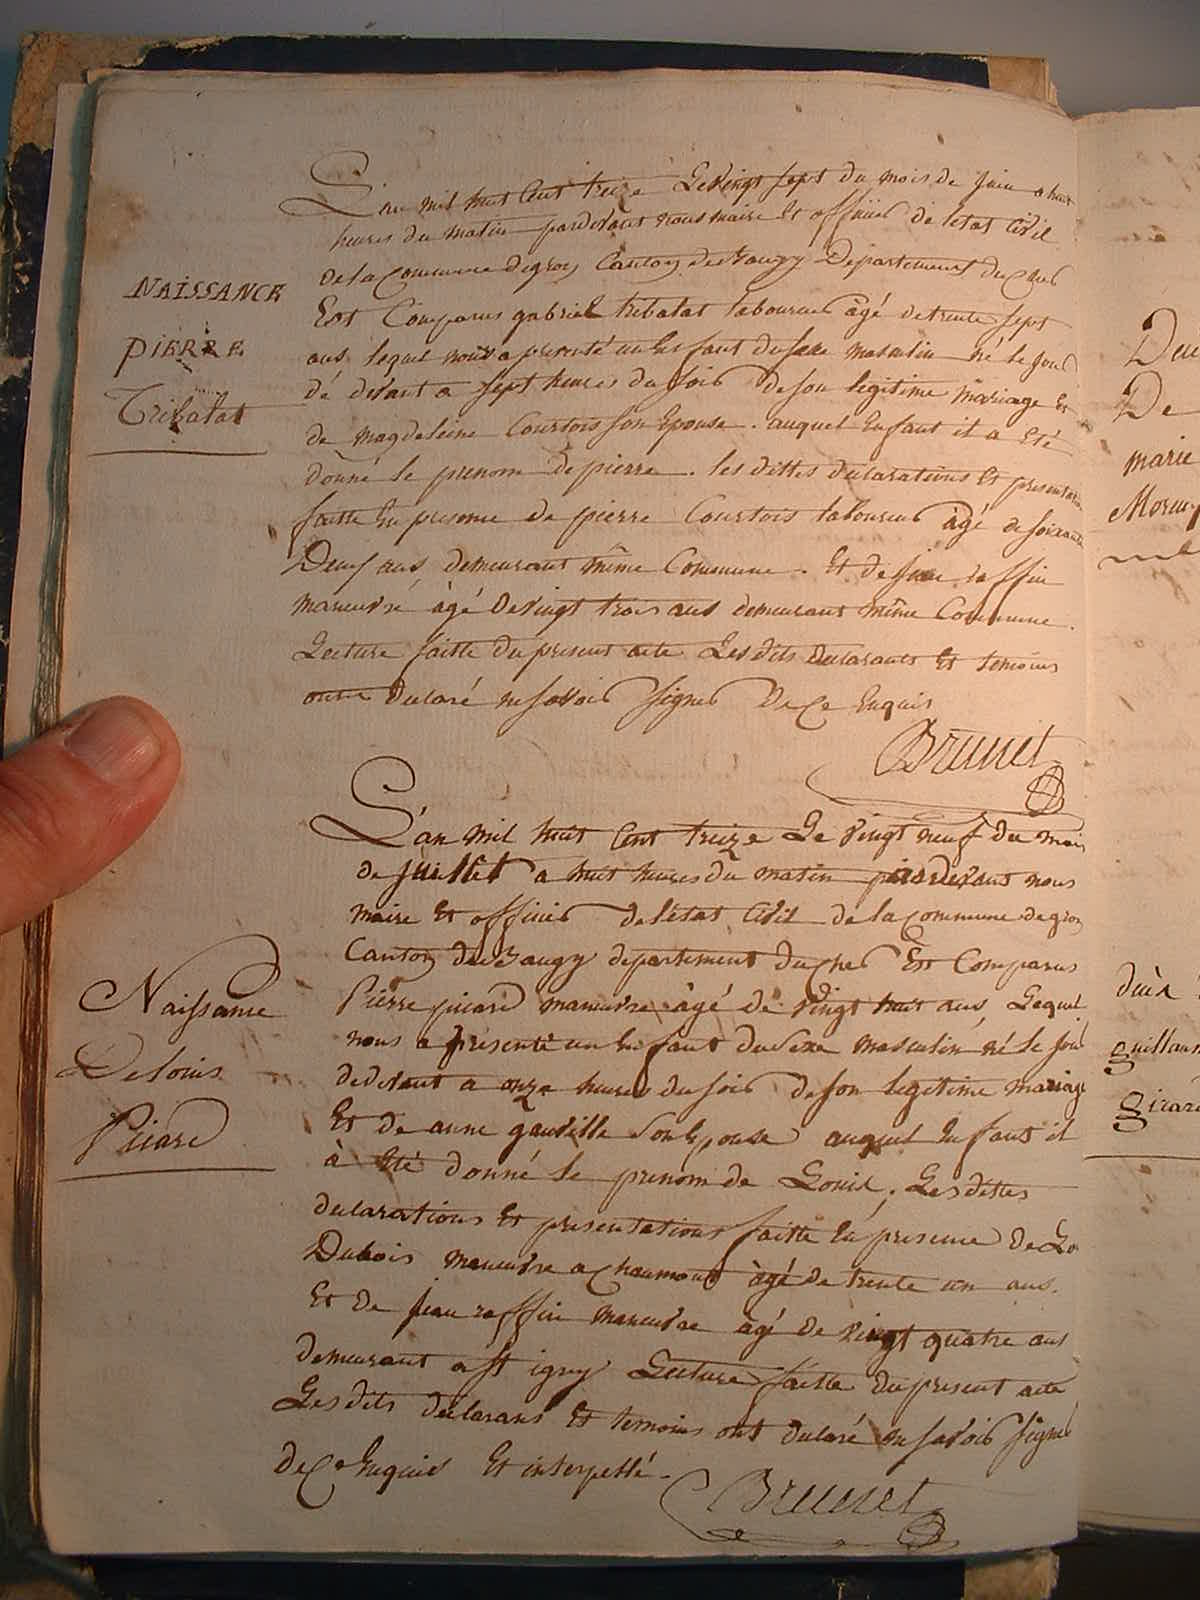 NAISSANCE
PIERRE
Tribalat
L'an mil huit Cent treize Le Vingt sept du mois de Juin a huit
heures du matin pardevant nous maire Et officier de letat Civil
de la Commune de groy Canton de Baugy Departement du Cher
Est Comparus gabriel tribalat laboureur âgé de trente sept
ans lequel nous a presenté un Enfant du sexe masculin né le jour
dé devant a sept heures du soir de son legitime mariage Et
de magdeleine Courtois son Epouse . auquel Enfant il a Eté
donné le prenom de pierre . les dittes declarations Et presentations
faitte En presence de pierre Courtois laboureur âgé de soixante
Deux ans demeurant même Commune . Et de jean raffin
maneuvre âgé de vingt trois ans demeurant même Commune .
Lecture faitte du present acte Les dits declarants Et temoins
ont declaré ne savoir signer De Ce Enquis
Brunet
Naissance
De louis
Picard
L'an mil huit Cent treize Le Vingt neuf du mois
de Juillet a huit heures du matin pardevant nous
maire Et officier de l'etat Civil de la Commune de groy
Canton de Baugy departement du cher Est Comparus
Pierre picard maneuvre âgé de Vingt huit ans, Lequel
nous a présenté un Enfant du Sexe masculin né le jour
de devant a onze heures du soir de son legitime mariage
Et de anne gaudille son Epouse auquel Enfant il
à Eté donné le prenom de Louis . Les dittes
declarations Et presentations faitte En presence De
Dubois maneuvre a Chaumont âgé de trente un ans.
Et de jean raffin maneuvre âgé de vingt quatre ans
demeurant a st igny Lecture faitte du present acte
Les dits declarans Et temoins ont declaré ne savoir signé
de Ce Enquis Et interpellé .
Brunet
De
marie
guillaume
girard